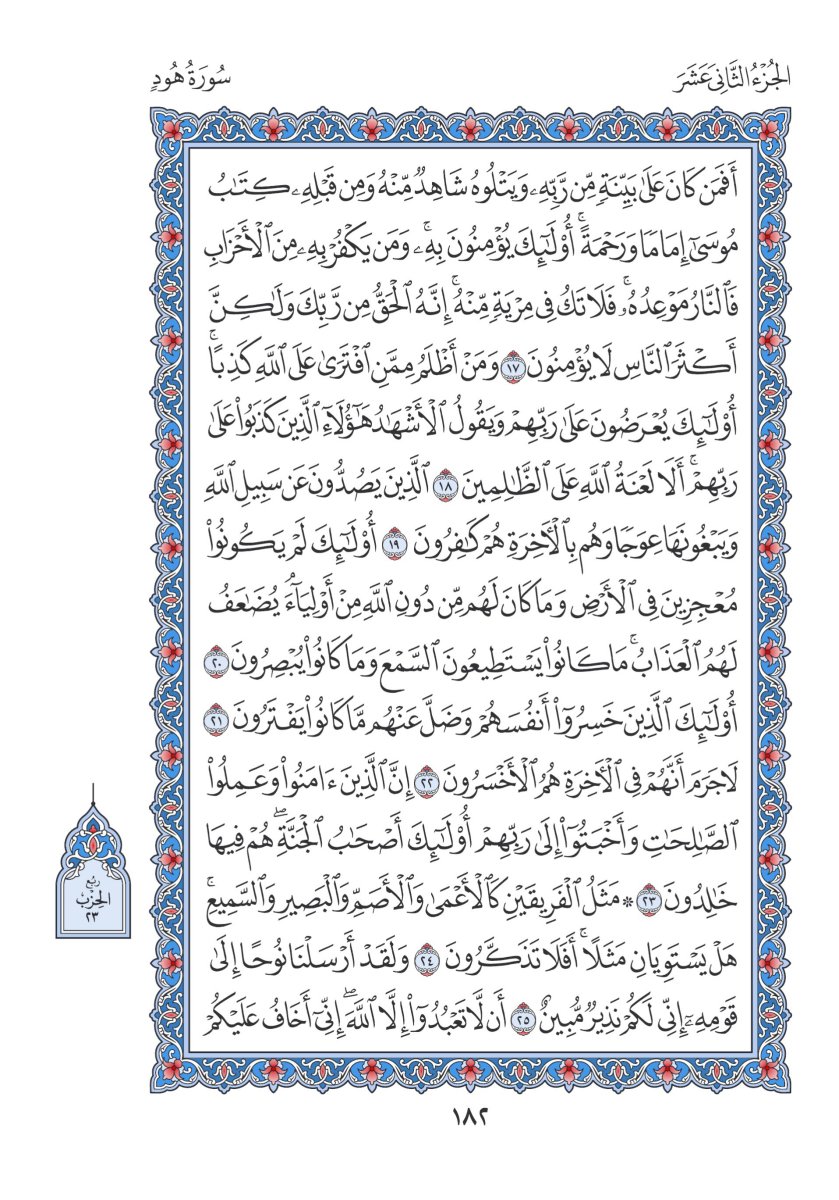 الجُزْءُ الثَّانِيَ عَشَرَ
سُورَةُ هُودٍ
أَفَمَن كَانَ عَلَىٰ بَيِّنَةٍ مِّن رَّبِّهِۦ وَيَتْلُوهُ شَاهِدٌ مِّنْهُ وَمِن قَبْلِهِۦ كِتَٰبُ
مُوسَىٰٓ إِمَامًا وَرَحْمَةً ۚ أُوْلَٰٓئِكَ يُؤْمِنُونَ بِهِۦ ۚ وَمَن يَكْفُرْ بِهِۦ مِنَ ٱلْأَحْزَابِ
فَٱلنَّارُ مَوْعِدُهُۥ ۚ فَلَا تَكُ فِى مِرْيَةٍ مِّنْهُ ۚ إِنَّهُ ٱلْحَقُّ مِن رَّبِّكَ وَلَٰكِنَّ
أَكْثَرَ ٱلنَّاسِ لَا يُؤْمِنُونَ ١٧ وَمَنْ أَظْلَمُ مِمَّنِ ٱفْتَرَىٰ عَلَى ٱللَّهِ كَذِبًا ۚ
أُوْلَٰٓئِكَ يُعْرَضُونَ عَلَىٰ رَبِّهِمْ وَيَقُولُ ٱلْأَشْهَٰدُ هَٰٓؤُلَآءِ ٱلَّذِينَ كَذَبُواْ عَلَىٰ
رَبِّهِمْ ۚ أَلَا لَعْنَةُ ٱللَّهِ عَلَى ٱلظَّٰلِمِينَ ١٨ ٱلَّذِينَ يَصُدُّونَ عَن سَبِيلِ ٱللَّهِ
وَيَبْغُونَهَا عِوَجًا وَهُم بِٱلْأَخِرَةِ هُمْ كَٰفِرُونَ ١٩ أُوْلَٰٓئِكَ لَمْ يَكُونُواْ
مُعْجِزِينَ فِى ٱلْأَرْضِ وَمَا كَانَ لَهُم مِّن دُونِ ٱللَّهِ مِنْ أَوْلِيَآءَ ۘ يُضَٰعَفُ
لَهُمُ ٱلْعَذَابُ ۚ مَا كَانُواْ يَسْتَطِيعُونَ ٱلسَّمْعَ وَمَا كَانُواْ يُبْصِرُونَ ٢٠
أُوْلَٰٓئِكَ ٱلَّذِينَ خَسِرُوٓاْ أَنفُسَهُمْ وَضَلَّ عَنْهُم مَّا كَانُواْ يَفْتَرُونَ ٢١
لَا جَرَمَ أَنَّهُمْ فِى ٱلْأَخِرَةِ هُمُ ٱلْأَخْسَرُونَ ٢٢ إِنَّ ٱلَّذِينَ ءَامَنُواْ وَعَمِلُواْ
ٱلصَّٰلِحَٰتِ وَأَخْبَتُوٓاْ إِلَىٰ رَبِّهِمْ أُوْلَٰٓئِكَ أَصْحَٰبُ ٱلْجَنَّةِ ۖ هُمْ فِيهَا
خَٰلِدُونَ ٢٣ ۞ مَثَلُ ٱلْفَرِيقَيْنِ كَٱلْأَعْمَىٰ وَٱلْأَصَمِّ وَٱلْبَصِيرِ وَٱلسَّمِيعِ ۚ
هَلْ يَسْتَوِيَانِ مَثَلًا ۚ أَفَلَا تَذَكَّرُونَ ٢٤ وَلَقَدْ أَرْسَلْنَا نُوحًا إِلَىٰ
قَوْمِهِۦٓ إِنِّى لَكُمْ نَذِيرٌ مُّبِينٌ ٢٥ أَن لَّا تَعْبُدُوٓاْ إِلَّا ٱللَّهَ ۖ إِنِّىٓ أَخَافُ عَلَيْكُمْ
رُبْعُ
الحِزْبِ
٢٣
١٨٢